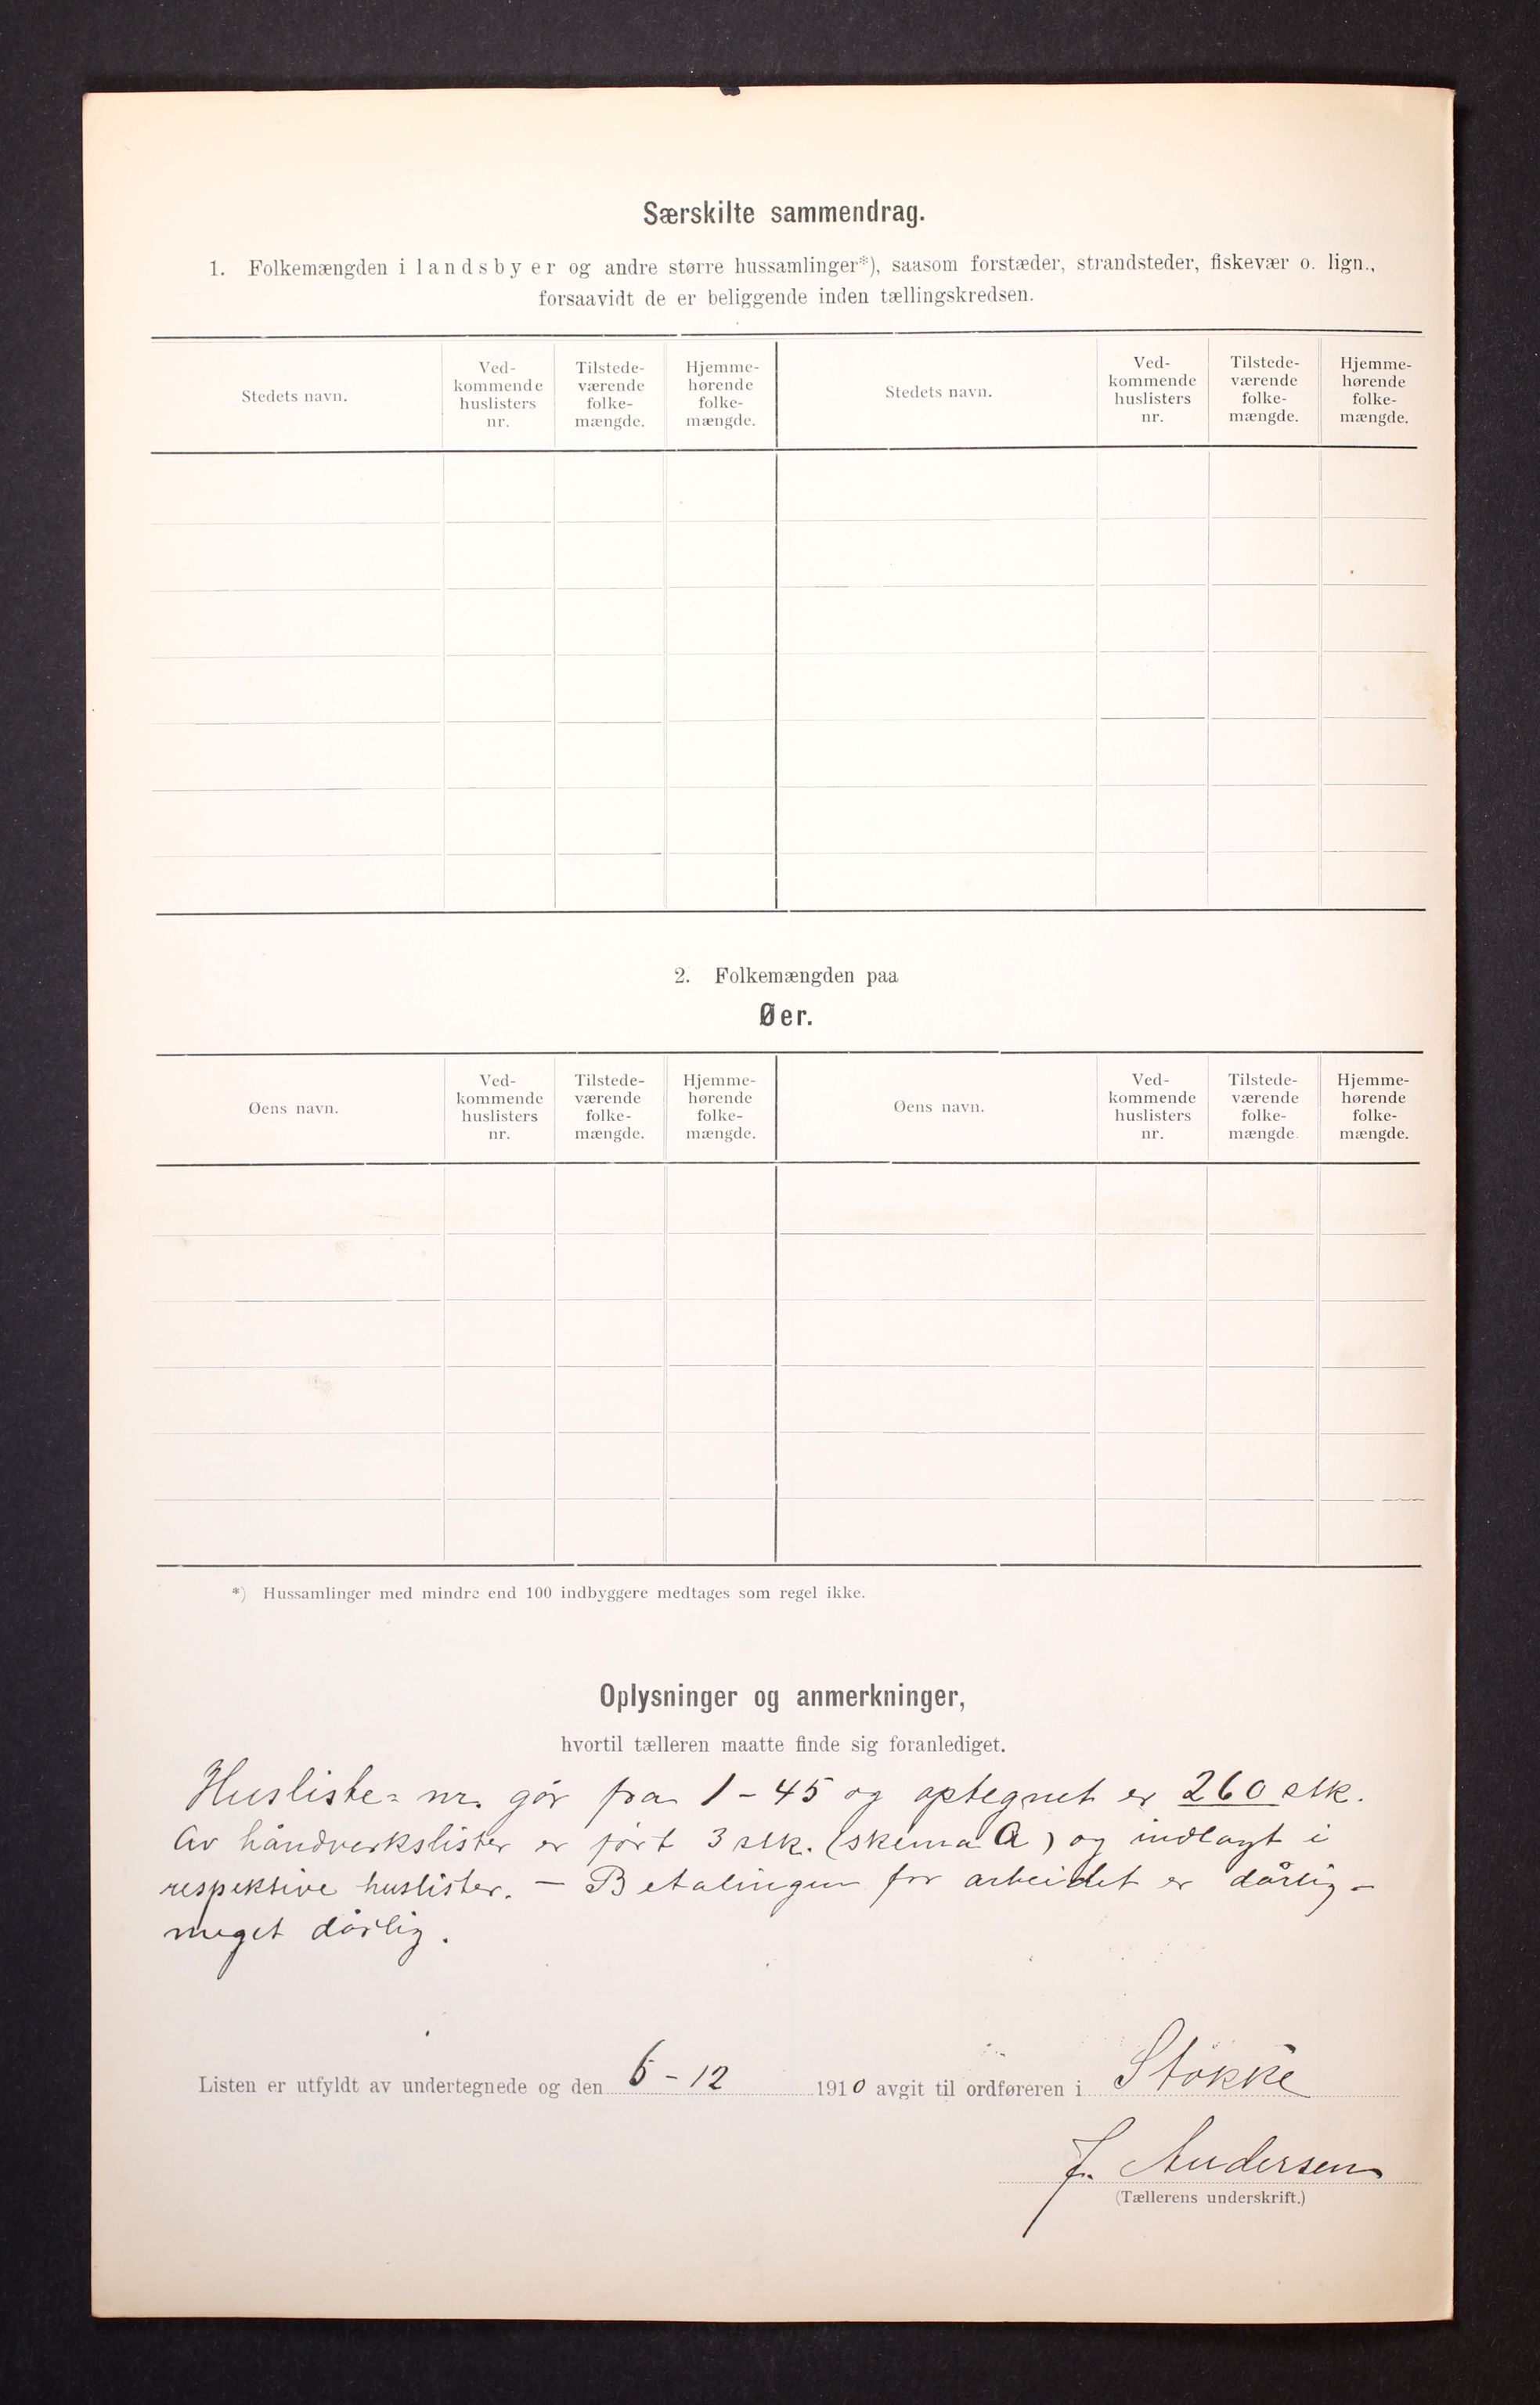 Særskilte sammendrag.
1. Folkemængden i landsbyer og andre større hussamlinger*), saasom forstæder, strandsteder, fiskevær o. lign.,
forsaavidt de er beliggende inden tællingskredsen.
Stedets navn.
Ved-
kommende
huslisters
nr.
Tilstede-
værende
folke-
mængde.
Hjemme-
hørende
folke-
mængde.
Stedets navn.
Ved-
kommende
huslisters
nr.
Tilstede-
værende
folke-
mængde.
Hjemme-
hørende
folke-
mængde.
2. Folkemængden paa
Øer.
Øens navn.
Ved-
kommende
huslisters
nr.
Tilstede-
værende
folke-
mængde.
Hjemme-
hørende
folke-
mængde.
Øens navn.
Ved-
kommende
huslisters
nr.
Tilstede-
værende
folke-
mængde.
Hjemme-
hørende
folke-
mængde.
*) Hussamlinger med mindre end 100 indbyggere medtages som regel ikke.
Oplysninger og anmerkninger,
hvortil tælleren maatte finde sig foranlediget.
Husliste- nr. går fra 1-45 og optegnet er 260 stk.
Av håndverkslister er ført 3 stk. (skema A) og indlagt i
respektive huslister. — Betalingen for arbeidet er dårlig -
meget dårlig.
Listen er utfyldt av undertegnede og den 6-12 1910 avgit til ordføreren i Stokke
J. Andersen
(Tællerens underskrift.)